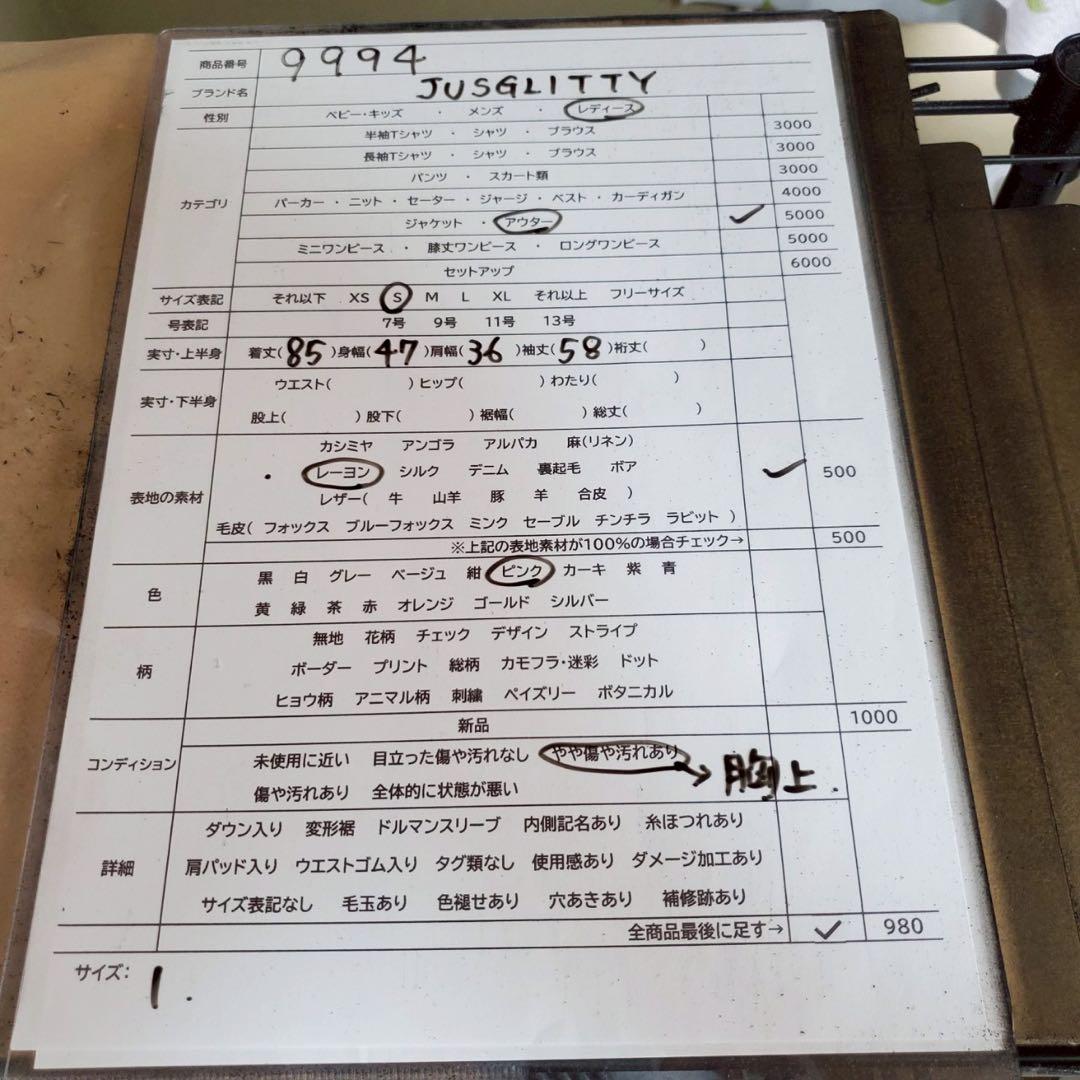 商品番号 9994
ブランド名 JUSGLITTY
性別 ベビー・キッズ ・ メンズ ・ レディース
半袖Tシャツ ・ シャツ ・ ブラウス 3000
長袖Tシャツ ・ シャツ ・ ブラウス 3000
パンツ ・ スカート類 3000
カテゴリ パーカー ・ ニット ・ セーター ・ ジャージ ・ ベスト ・ カーディガン 4000
ジャケット ・ アウター ✓ 5000
ミニワンピース ・ 膝丈ワンピース ・ ロングワンピース 5000
セットアップ 6000
サイズ表記 それ以下 XS S M L XL それ以上 フリーサイズ
号表記 7号 9号 11号 13号
実寸・上半身 着丈(85)身幅(47)肩幅(36)袖丈(58)裄丈( )
実寸・下半身 ウエスト( )ヒップ( )わたり( )
股上( )股下( )裾幅( )総丈( )
カシミヤ アンゴラ アルパカ 麻(リネン)
・ レーヨン シルク デニム 裏起毛 ボア ✓ 500
表地の素材 レザー( 牛 山羊 豚 羊 合皮 )
毛皮( フォックス ブルーフォックス ミンク セーブル チンチラ ラビット )
※上記の表地素材が100%の場合チェック→ 500
色 黒 白 グレー ベージュ 紺 ピンク カーキ 紫 青
黄 緑 茶 赤 オレンジ ゴールド シルバー
無地 花柄 チェック デザイン ストライプ
柄 ボーダー プリント 総柄 カモフラ・迷彩 ドット
ヒョウ柄 アニマル柄 刺繍 ペイズリー ボタニカル
新品 1000
コンディション 未使用に近い 目立った傷や汚れなし やや傷や汚れあり → 胸上.
傷や汚れあり 全体的に状態が悪い
ダウン入り 変形裾 ドルマンスリーブ 内側記名あり 糸ほつれあり
詳細 肩パッド入り ウエストゴム入り タグ類なし 使用感あり ダメージ加工あり
サイズ表記なし 毛玉あり 色褪せあり 穴あきあり 補修跡あり
全商品最後に足す→ ✓ 980
サイズ: 1.